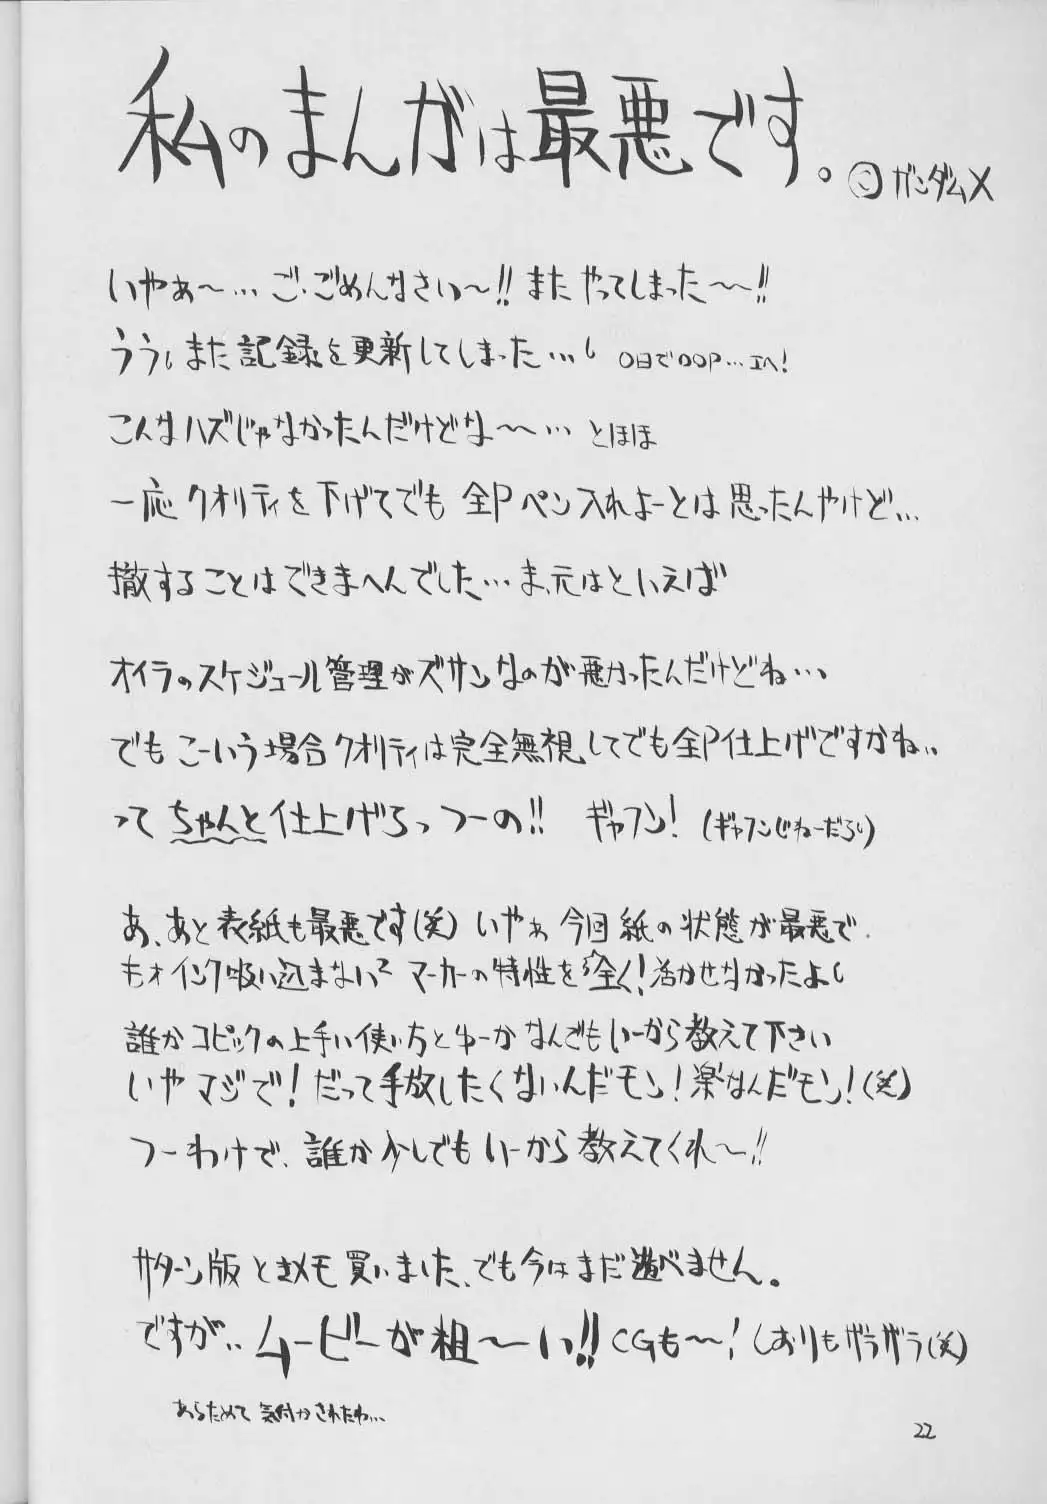 私のまんがは最悪です。 ©ガンダムX
いやぁ〜… ご・ごめんなさい〜!! また やってしまった〜〜!!
うう、また記録を更新してしまった…。 〇日で〇〇P…エヘ!
こんなハズじゃなかったんだけどな〜〜… とほほ
一応 クオリティを下げてでも 全Pペン入れよーとは思ったんやけど…
撤することはできまへんでした… ま、元はといえば
オイラのスケジュール管理がズサンなのが悪かったんだけどね…
でも こーいう場合クオリティは完全無視してでも全P仕上げですかね..
って ちゃんと仕上げろっつーの!! ギャフン! (ギャフンじゃねーだろ)
あ、あと表紙も最悪です(笑) いやぁ今回紙の状態が最悪で、
もォインク吸い込まない² マーカーの特性を全く!活かせなかったよ
誰かコピックの上手い使い方とゆーかなんでもいーから教えて下さい
いやマジで! だって手放したくないんだモン! 楽なんだモン!(笑)
つーわけで、誰か少しでもいーから教えてくれ〜!!
サターン版 ときメモ 買いました、でも今はまだ遊べません。
ですが.. ムービーが粗〜い!! CGも〜! しおりもガラガラ(笑)
あらためて 気付かされたわ…
22